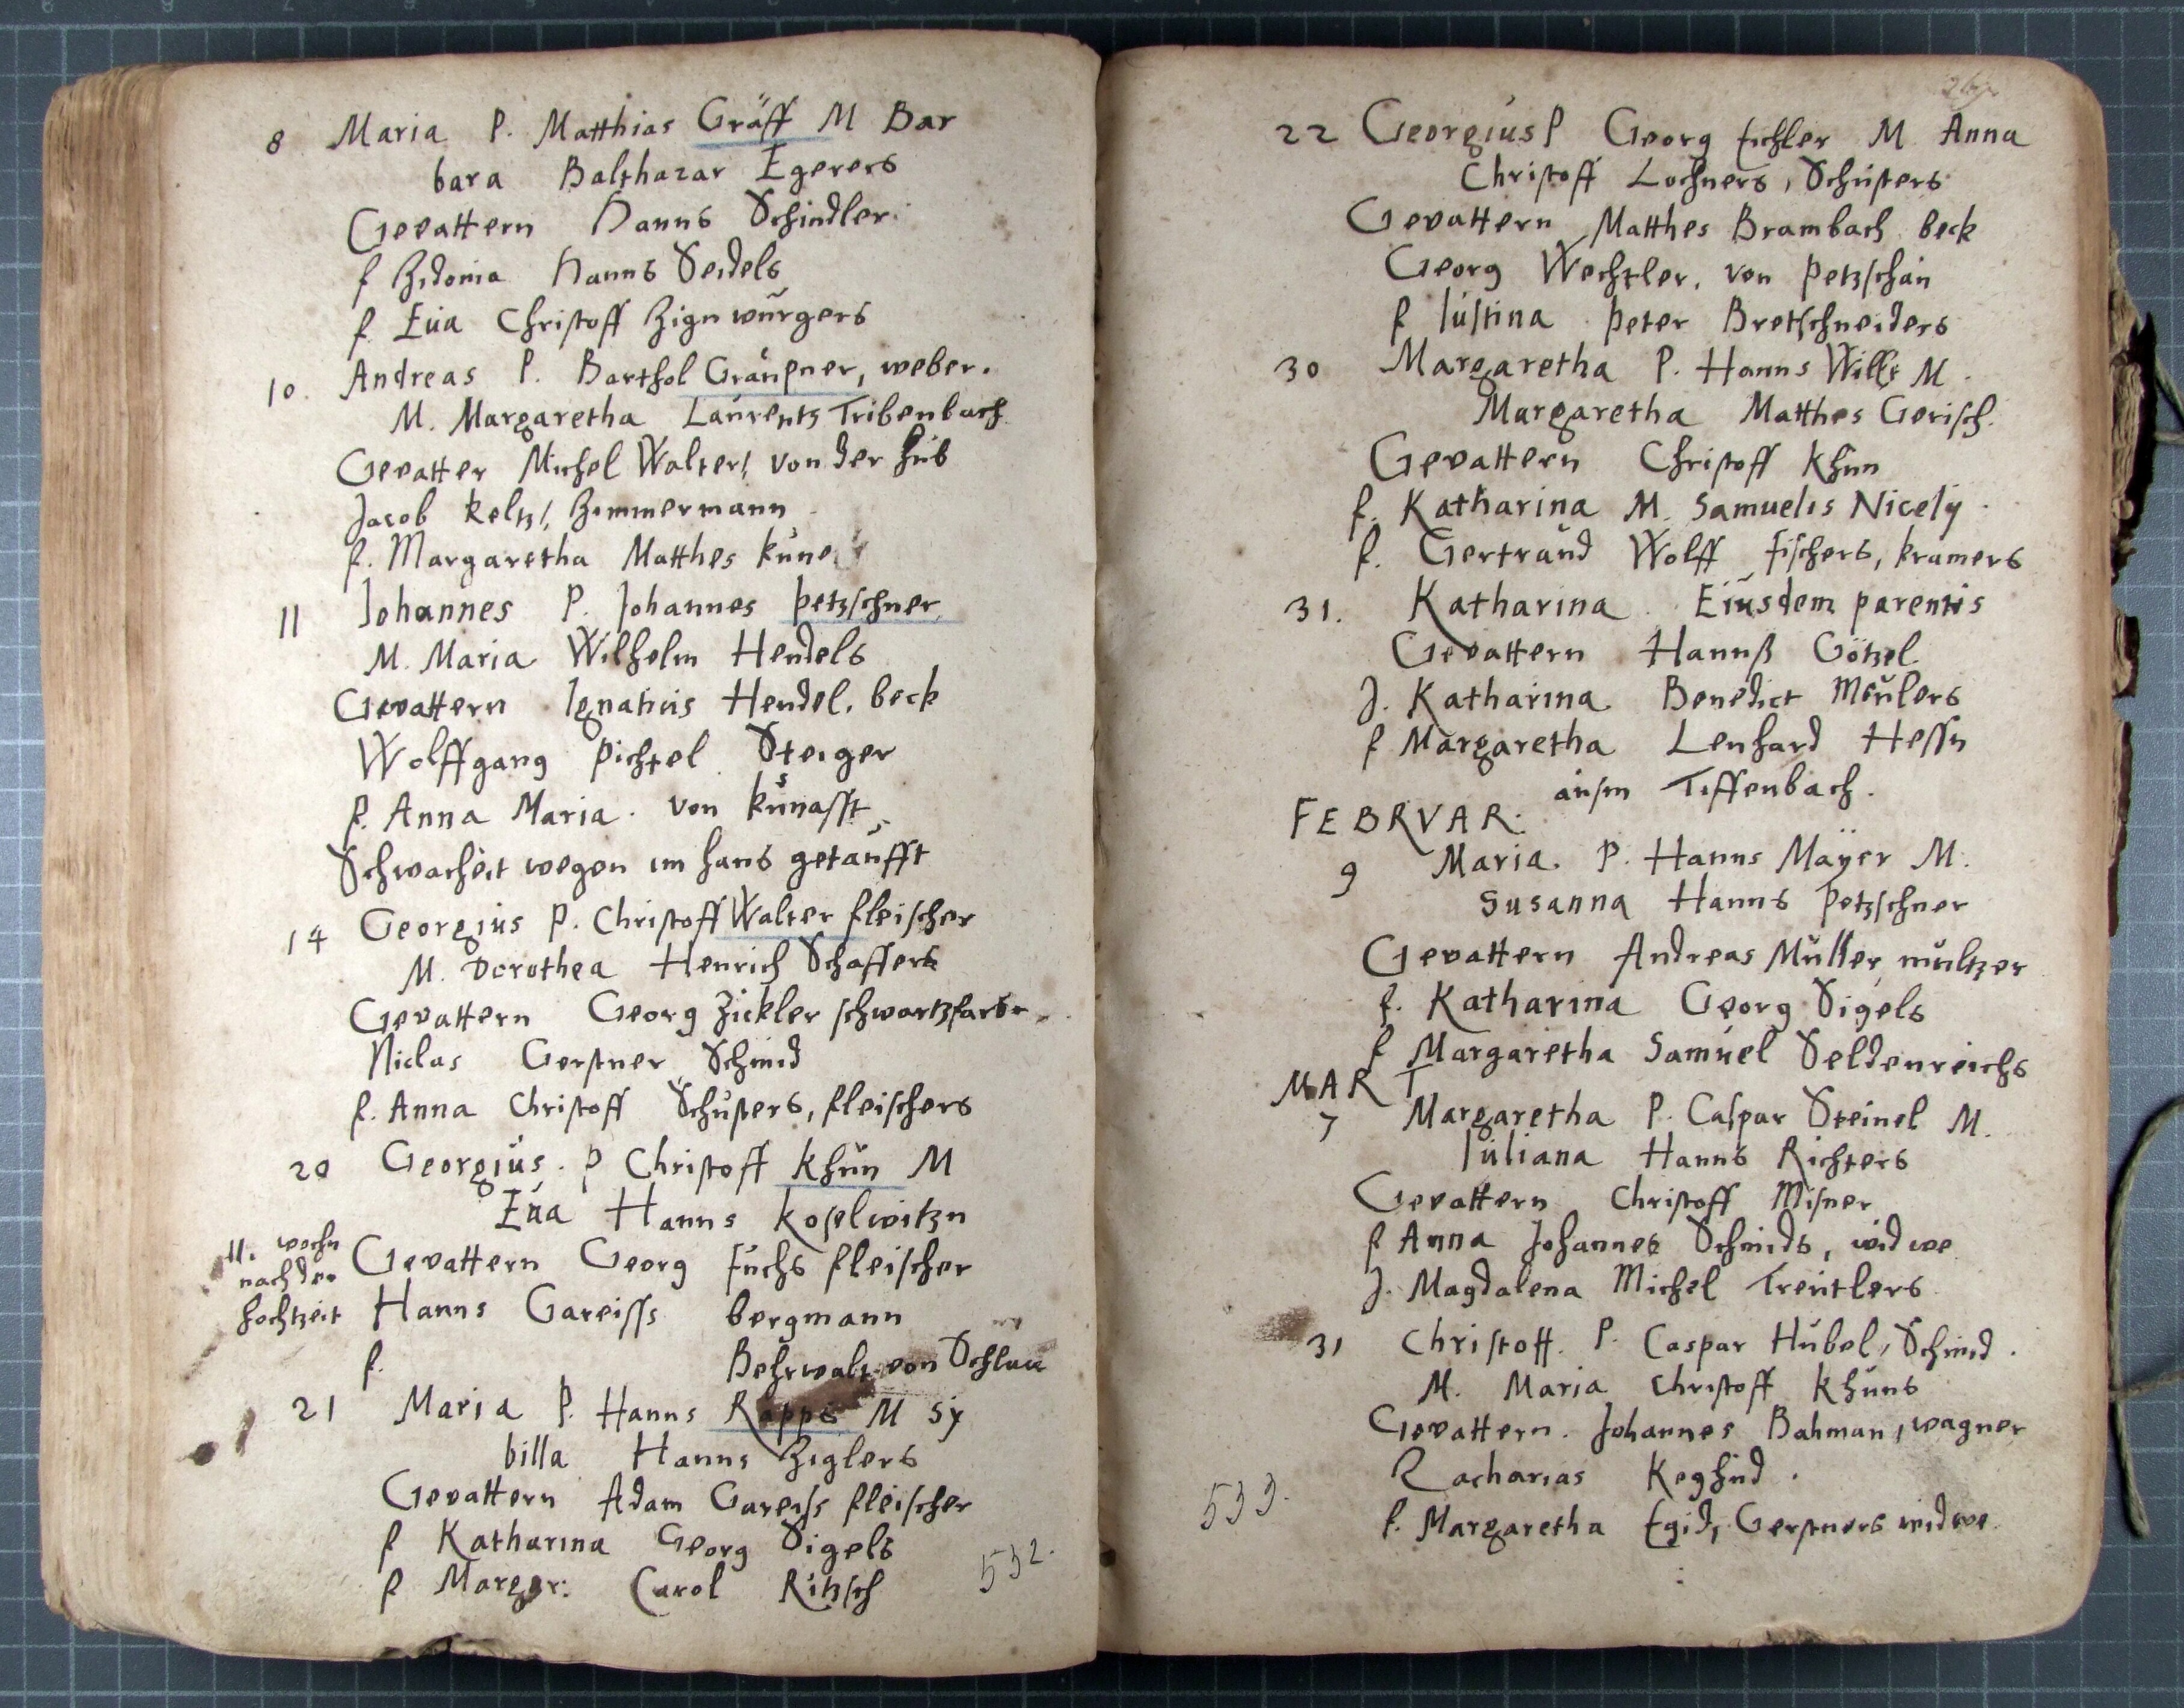 8 Maria P. Matthias Gräff M Bar
bara Balthazar Egerers
Gevattern Hanns Schindler.
f Zidonia Hanns Seidels
f. Eua Christoff Zignwürgers
10. Andreas P. Barthol Graupner, weber.
M. Margaretha Laurentz Tribenbach
Gevatter Michel Walter, von der Hub
Jacob Keltz, Zimmermann
f. Margaretha Matthes Kune
11 Johannes P. Johannes Petzschner,
M. Maria Wilhelm Hendels
Gevattern Ignatius Hendel, beck
Wolffgang Pichtel Steiger
f. Anna Maria. von Kunasst
Schwacheit wegen im haus getaufft
14 Georgius P. Christoff Walter fleischer
M. Dorothea Henrich Schaffers
Gevattern Georg Zickler schwartzfarbr
Niclas Gerstner Schmid
f. Anna Christoff Schusters, fleischers
20 Georgius. P Christoff Khün M
Eua Hanns Koselwitzn
11. wochn
nach der
hochtzeit
Gevattern Georg Fuchs fleischer
Hanns Gareiss bergmann
f. von
21 Maria P. Hanns Rapps M Sy
billa Hanns Ziglers
Gevattern Adam Gareiss fleischer
f Katharina Georg Sigels
f Margar: Carol Ritzsch
532.
22 Georgius P Georg Eichler M Anna
Christoff Lochners, Schusters
Gevattern Matthes Brambach beck
Georg Wechtler, von Petzschau
f Iustina Peter Bretschneiders
30 Margaretha P. Hanns Wilk M.
Margaretha Matthes Gerisch.
Gevattern Christoff Khun
f. Katharina M. Samuelis Nicely
f. Gertraud Wolff Fischers, kramers
31. Katharina Eiusdem parentis
Gevattern Hannß Götzel
J. Katharina Benedict Meulers
f Margaretha Lenhard Hessn
ausm Tiffenbach.
FEBRVAR.
9 Maria. P. Hanns Mayer M.
Susanna Hanns Petzschner
Gevattern Andreas Müller multzer
f. Katharina Georg Sigels
f Margaretha Samuel Seldenreichs
MART
7 Margaretha P. Caspar Steinel M.
Iuliana Hanns Richters
Gevattern Christoff Misner
f Anna Johannes Schmids, widwe
J. Magdalena Michel Treutlers
31 Christoff. P. Caspar Hubel, Schmid.
M. Maria Christoff Khuns
Gevattern. Johannes Bahman, wagner
Zacharias Keghud.
f. Margaretha Egid, Gerstners widwe
533.